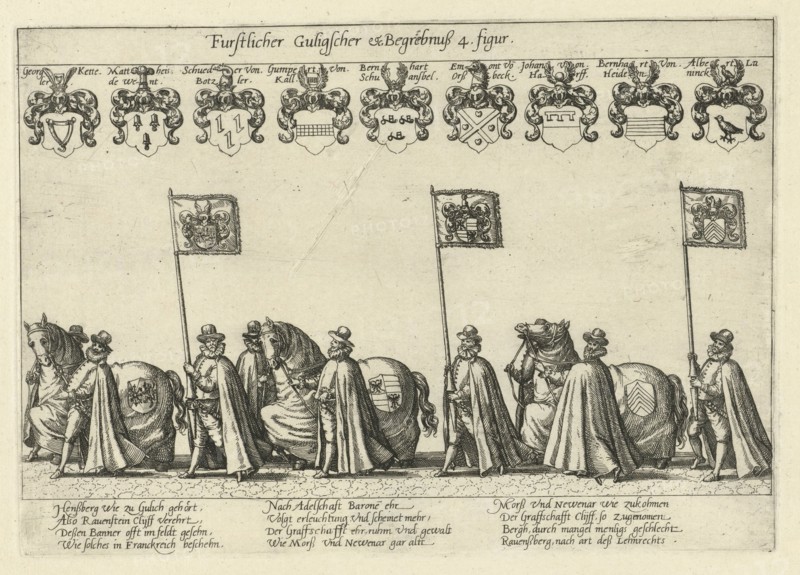 Furstlicher Guligscher & Begrebnuß 4. figur.
Georg Kette.
ler
Matt heis
de We nt.
Schued er Von
Botz ler.
Gumpe rt Von
Kall
Bern hart
Schu ansbel.
Em ont Vō
Orß beck.
Johan Von
Ha rff.
Bernha rt Von
Heide m.
Albe rt Lu
ninck
Henßberg wie zu Gulich gehört,
Also Rauenstein Cliff verehrt
Deßen Banner offt im feldt gesehn,
Wie solches in Franckreich beschehn.
Nach Adelschaft Barone ehr
Volgt erleuchtung Vnd scheinet mehr,
Der Graffschafft ehr, ruhm Vnd gewalt
Wie Morß Vnd Newenar gar allt
Morß Vnd Newenar wie zukohmen
Der Graffschafft Cliff, so Zugenomen
Bergh, durch mangel menlige geschlecht
Rauenßberg, nach art deß Lehnrechts.